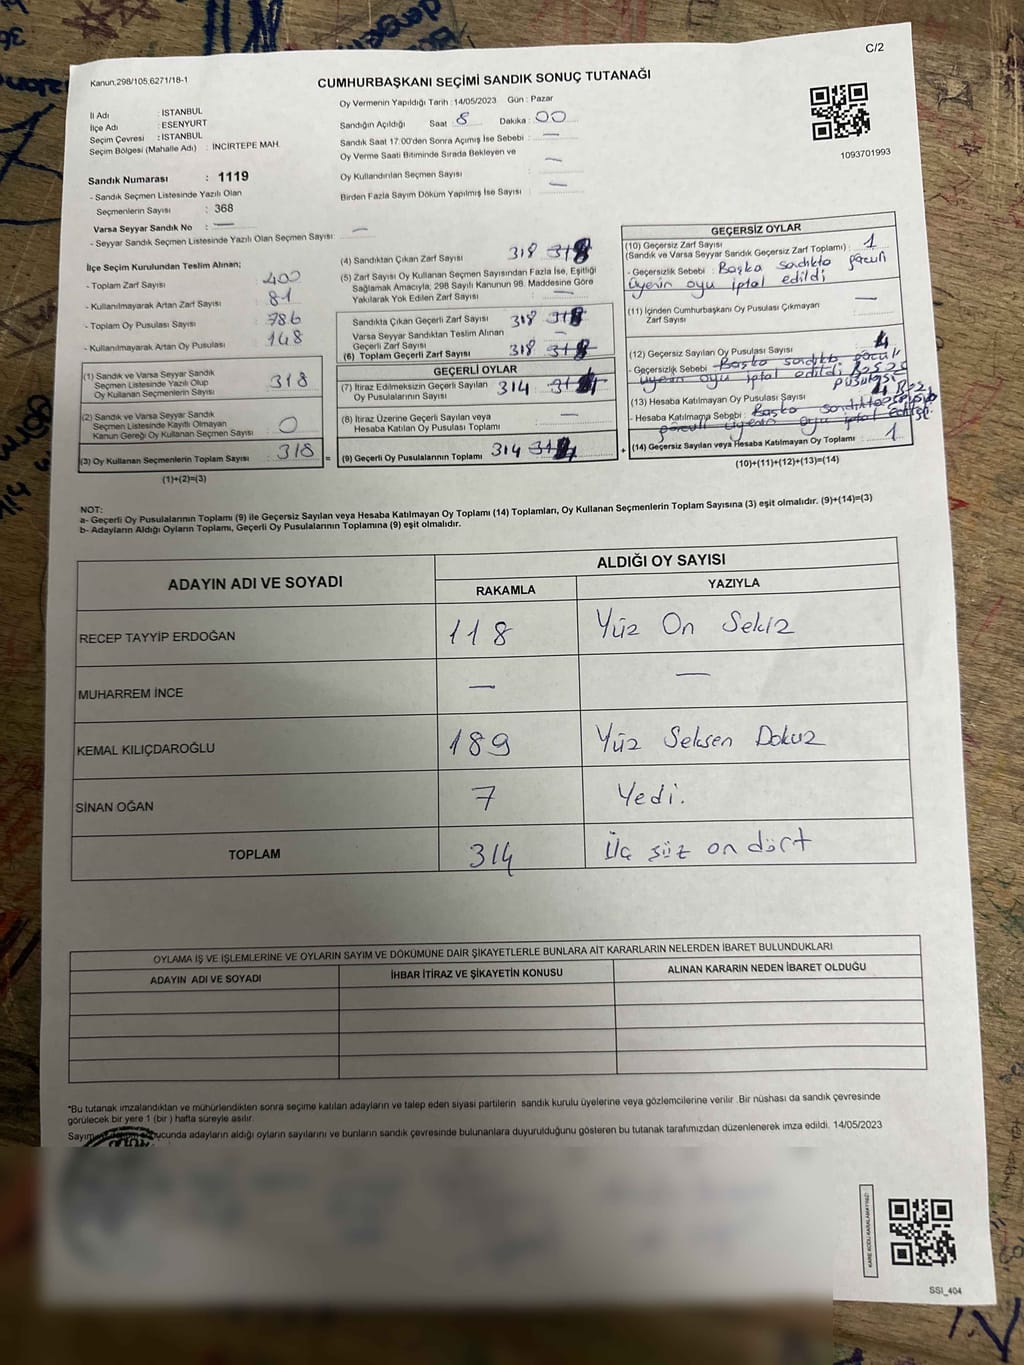 C/2
Kanun,298/105,6271/18-1
CUMHURBAŞKANI SEÇİMİ SANDIK SONUÇ TUTANAĞI
İl Adı : İSTANBUL
İlçe Adı : ESENYURT
Seçim Çevresi : İSTANBUL
Seçim Bölgesi (Mahalle Adı) : İNCİRTEPE MAH.
Sandık Numarası : 1119
- Sandık Seçmen Listesinde Yazılı Olan
Seçmenlerin Sayısı : 368
Varsa Seyyar Sandık No : —
- Seyyar Sandık Seçmen Listesinde Yazılı Olan Seçmen Sayısı: —
Oy Vermenin Yapıldığı Tarih : 14/05/2023 Gün : Pazar
Sandığın Açıldığı Saat : 8 Dakika : 00
Sandık Saat 17:00'den Sonra Açımış İse Sebebi : —
Oy Verme Saati Bitiminde Sırada Bekleyen ve
Oy Kullandırılan Seçmen Sayısı : —
Birden Fazla Sayım Döküm Yapılmış İse Sayısı : —
1093701993
İlçe Seçim Kurulundan Teslim Alınan;
- Toplam Zarf Sayısı : 400
- Kullanılmayarak Artan Zarf Sayısı : 81
- Toplam Oy Pusulası Sayısı : 786
- Kullanılmayarak Artan Oy Pusulası : 148
(1) Sandık ve Varsa Seyyar Sandık
Seçmen Listesinde Yazılı Olup
Oy Kullanan Seçmenlerin Sayısı : 318
(2) Sandık ve Varsa Seyyar Sandık
Seçmen Listesinde Kayıtlı Olmayan
Kanun Gereği Oy Kullanan Seçmen Sayısı : 0
(3) Oy Kullanan Seçmenlerin Toplam Sayısı : 318 =
(1)+(2)=(3)
(4) Sandıktan Çıkan Zarf Sayısı 318
(5) Zarf Sayısı Oy Kullanan Seçmen Sayısından Fazla İse, Eşitliği
Sağlamak Amacıyla, 298 Sayılı Kanunun 98. Maddesine Göre
Yakılarak Yok Edilen Zarf Sayısı : —
Sandıkta Çıkan Geçerli Zarf Sayısı : 318
Varsa Seyyar Sandıktan Teslim Alınan
Geçerli Zarf Sayısı : —
(6) Toplam Geçerli Zarf Sayısı : 318
GEÇERLİ OYLAR
(7) İtiraz Edilmeksizin Geçerli Sayılan
Oy Pusulalarının Sayısı : 314
(8) İtiraz Üzerine Geçerli Sayılan veya
Hesaba Katılan Oy Pusulası Toplamı : —
(9) Geçerli Oy Pusulalarının Toplamı : 314 +
GEÇERSİZ OYLAR
(10) Geçersiz Zarf Sayısı
(Sandık ve Varsa Seyyar Sandık Geçersiz Zarf Toplamı) : 1
- Geçersizlik Sebebi : Başka sandıkta görevli
üyenin oyu iptal edildi
(11) İçinden Cumhurbaşkanı Oy Pusulası Çıkmayan
Zarf Sayısı : —
(12) Geçersiz Sayılan Oy Pusulası Sayısı
- Geçersizlik Sebebi : Başka sandıkta görevli
üyenin oyu iptal edildi
pusulası
(13) Hesaba Katılmayan Oy Pusulası Sayısı
- Hesaba Katılmama Sebebi : Başka sandıkta
görevli üyenin oyu iptal
(14) Geçersiz Sayılan veya Hesaba Katılmayan Oy Toplamı : 1
(10)+(11)+(12)+(13)=(14)
NOT:
a- Geçerli Oy Pusulalarının Toplamı (9) ile Geçersiz Sayılan veya Hesaba Katılmayan Oy Toplamı (14) Toplamları, Oy Kullanan Seçmenlerin Toplam Sayısına (3) eşit olmalıdır. (9)+(14)=(3)
b- Adayların Aldığı Oyların Toplamı, Geçerli Oy Pusulalarının Toplamına (9) eşit olmalıdır.
ADAYIN ADI VE SOYADI
ALDIĞI OY SAYISI
RAKAMLA YAZIYLA
RECEP TAYYİP ERDOĞAN 118 Yüz On Sekiz
MUHARREM İNCE — —
KEMAL KILIÇDAROĞLU 189 Yüz Seksen Dokuz
SİNAN OĞAN 7 Yedi.
TOPLAM 314 Üç yüz on dört
OYLAMA İŞ VE İŞLEMLERİNE VE OYLARIN SAYIM VE DÖKÜMÜNE DAİR ŞİKAYETLERLE BUNLARA AİT KARARLARIN NELERDEN İBARET BULUNDUKLARI
ADAYIN ADI VE SOYADI İHBAR İTİRAZ VE ŞİKAYETİN KONUSU ALINAN KARARIN NEDEN İBARET OLDUĞU
*Bu tutanak imzalandıktan ve mühürlendikten sonra seçime katılan adayların ve talep eden siyasi partilerin sandık kurulu üyelerine veya gözlemcilerine verilir .Bir nüshası da sandık çevresinde
görülecek bir yere 1 (bir ) hafta süreyle asılır.
ucunda adayların aldığı oyların sayılarını ve bunların sandık çevresinde bulunanlara duyurulduğunu gösteren bu tutanak tarafımızdan düzenlenerek imza edildi. 14/05/2023
SSI_404